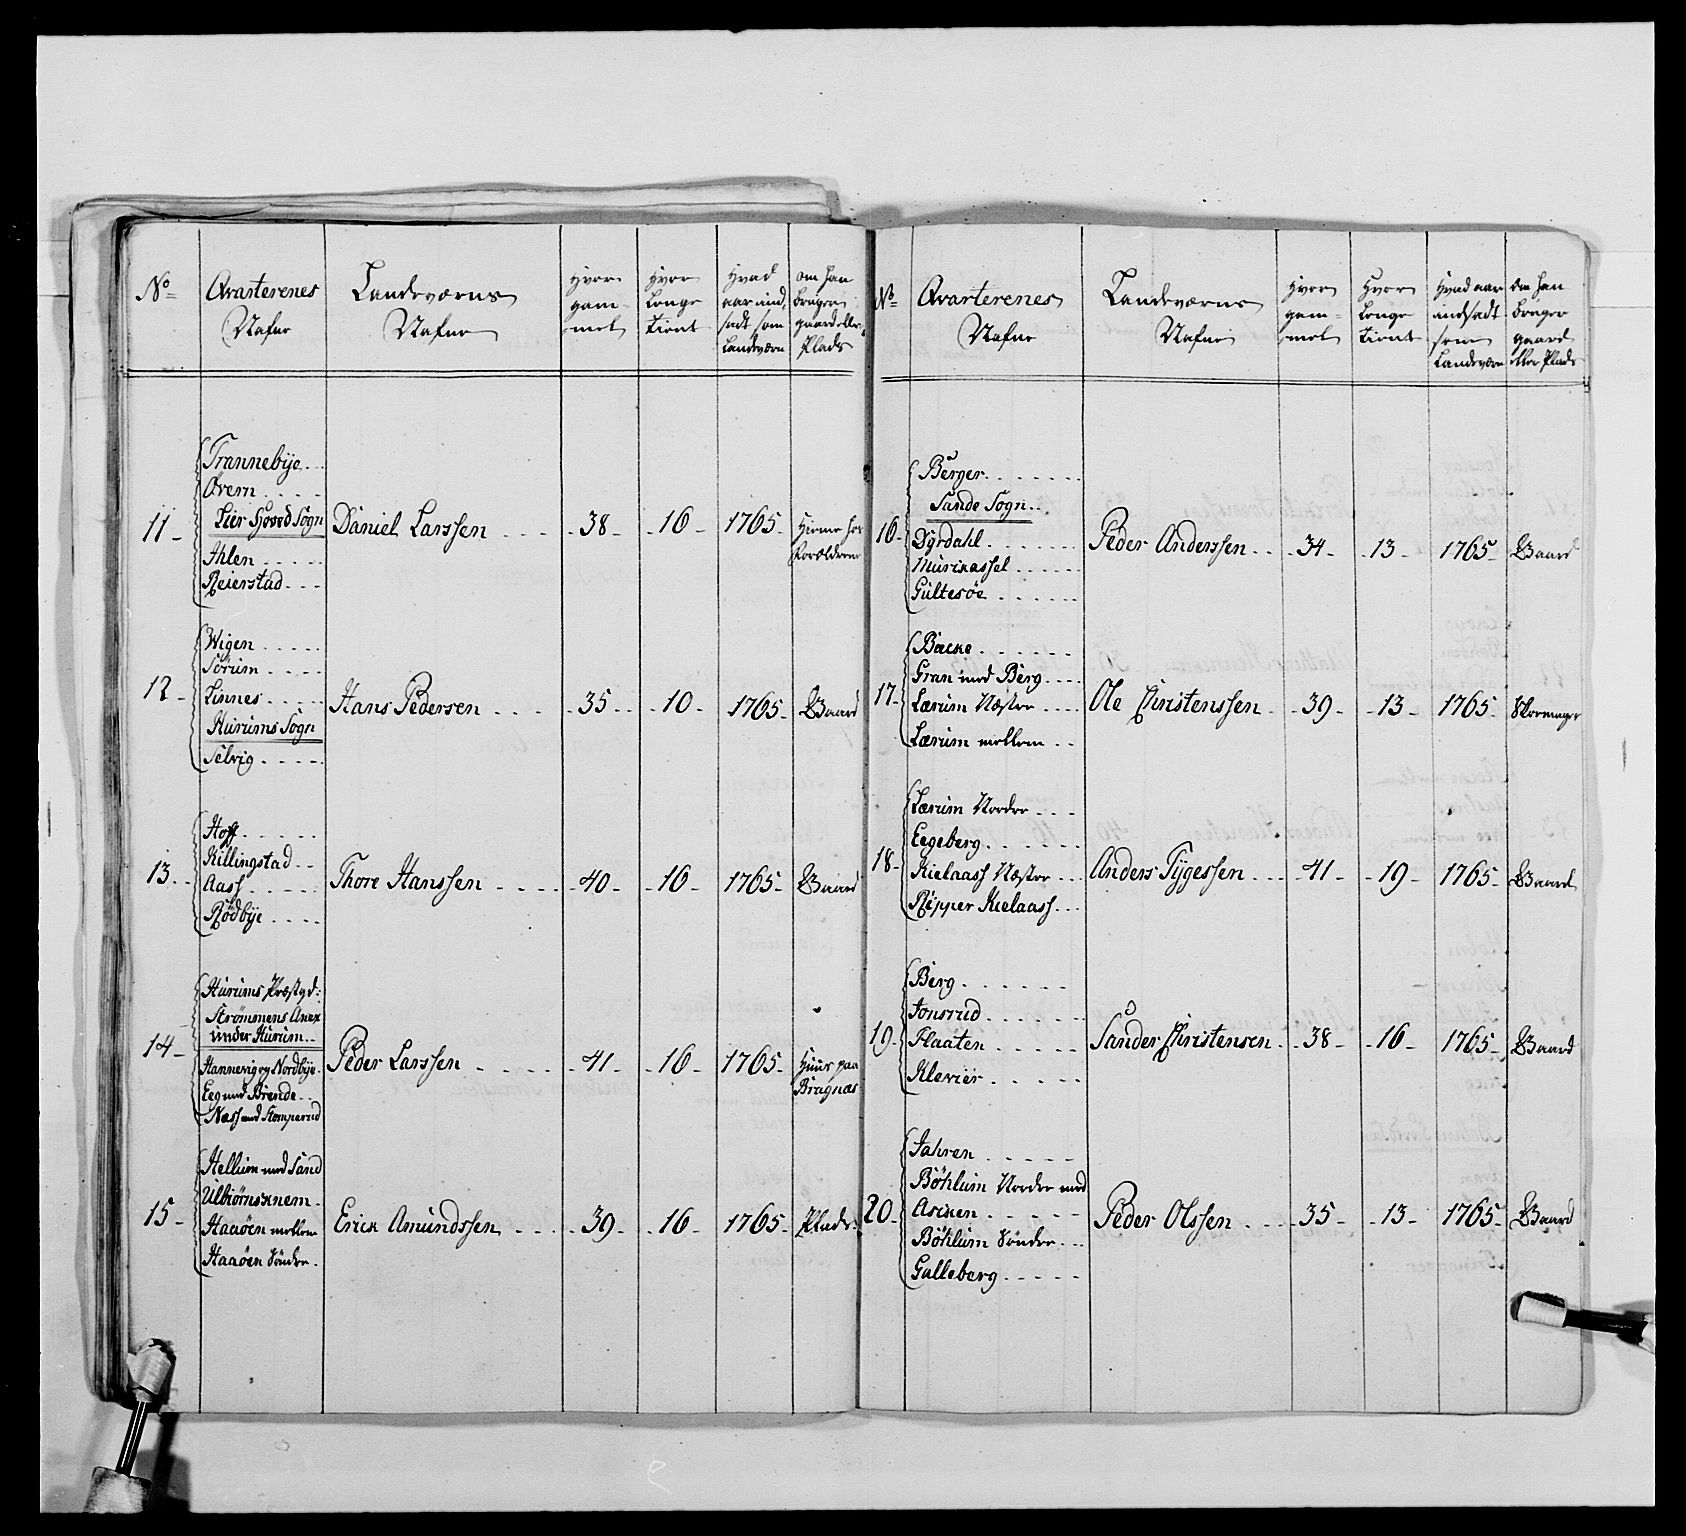 No
Qvarterenes
Nafne
Landeværns
Nafne
Hvor
gam-
mel
Hvor
Lenge
tient
Hvad
aar ind,
sadt som
Landeværn
om han
bruger
gaard eller
Plads
11-
Trannebÿe...
Øvern....
Lier Hoved Sogn
Ahlen.....
Reierstad...
Daniel Larssen ....
-38-
-16-
1765-
Hieme hos
Forældrene
12-
Wigen.....
Sørum....
Linnes.....
Hurums Sogn
Selvig.....
Hans Pedersen ....
-35-
-10-
1765-
Gaard
13..
Hoff.....
Killingstad..
Aass.....
Rødbÿe....
Thore Hanssen .....
-40-
-16-
1765-
Gaard
14-
Hurums Præstgd:
Strømmens Anex
under Hurum..
Hannevig og Nordbÿe.
Eeg med Brende..
Næss med Stomperud
Peder Larssen .....
-41-
-16-
1765-
Huus paa
Bragnæs
15-
Hellum med Sand
Ulbiørnsknem.
Haaøen mellem
Haaøen Søndre.
Erick Amundssen ....
-39-
-16-
1765-
Plads
No
Qvarterenes
Nafne
Landeværns
Nafne
Hvor
gam-
mel
Hvor
Lenge
tient
Hvad aar
andsadt
som
Landeværn
om han
bruger
gaard
eller Plads
16-
Berger.......
Sande Sogn...
Dÿrdahl.......
Murikassel......
Gultesøe.......
Peder Anderssen...
-34-
-13-
1765-
Gaard
17-
Backe......
Gran med Berg....
Lærum Næstre....
Lærum mellem..
Ole Christenssen.
-39-
-13-
1765-
Skoemager
18-
Lærum Nordre...
Eegeberg......
Kielaass Næstre...
Ripper Kielaass...
Anders Tÿgessen...
-41-
-19-
1765-
Gaard
19-
Berg......
Jonsrud......
Flaaten.....
Klevier.....
Sander Christensen.
-38-
-16-
1765-
Gaard
20-
Jahren.....
Bøhlum Nordre med
Asknen.....
Bøhlum Søndre...
Galleberg.....
Peder Olssen...
-35-
-13-
1765-
Gaard